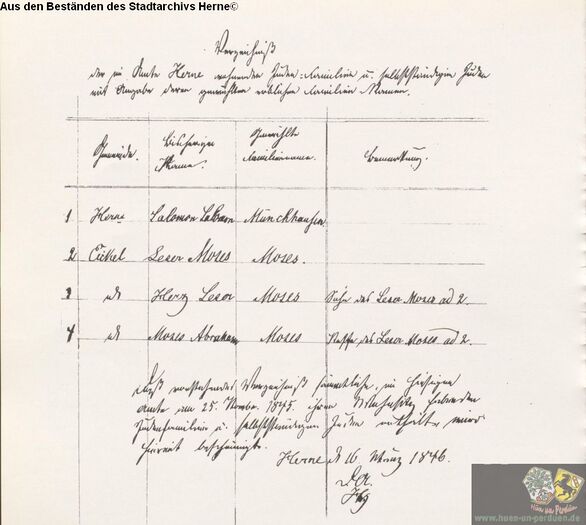 Aus den Beständen des Stadtarchivs Herne©
Verzeichniß
der im Amte Herne wohnenden Juden-Familien u. selbstständigen Juden
mit Angabe deren gewählten erblichen Familien Namen.
Gemeinde. Bisherige Name. Gewählte Familienname. Bemerkung.
1 Herne Salomon Münckhausen
2 Eickel Leser Moses Moses.
3 do Herz Leser Moses Sohn des Leser Moses ad 2.
4 do Moses Abraham Moses des Leser Moses ad 2.
Daß vorstehendes Verzeichniß sämmtliche im hiesigen
Amte am 25. Novbr. 1845. ihren Wohnsitz habenden
Judenfamilien u. selbstständigen Juden enthält, wird
hiermit bescheinigt.
Herne d 16 März 1846.
Hün un Perdüen
www.huen-un-perduen.de